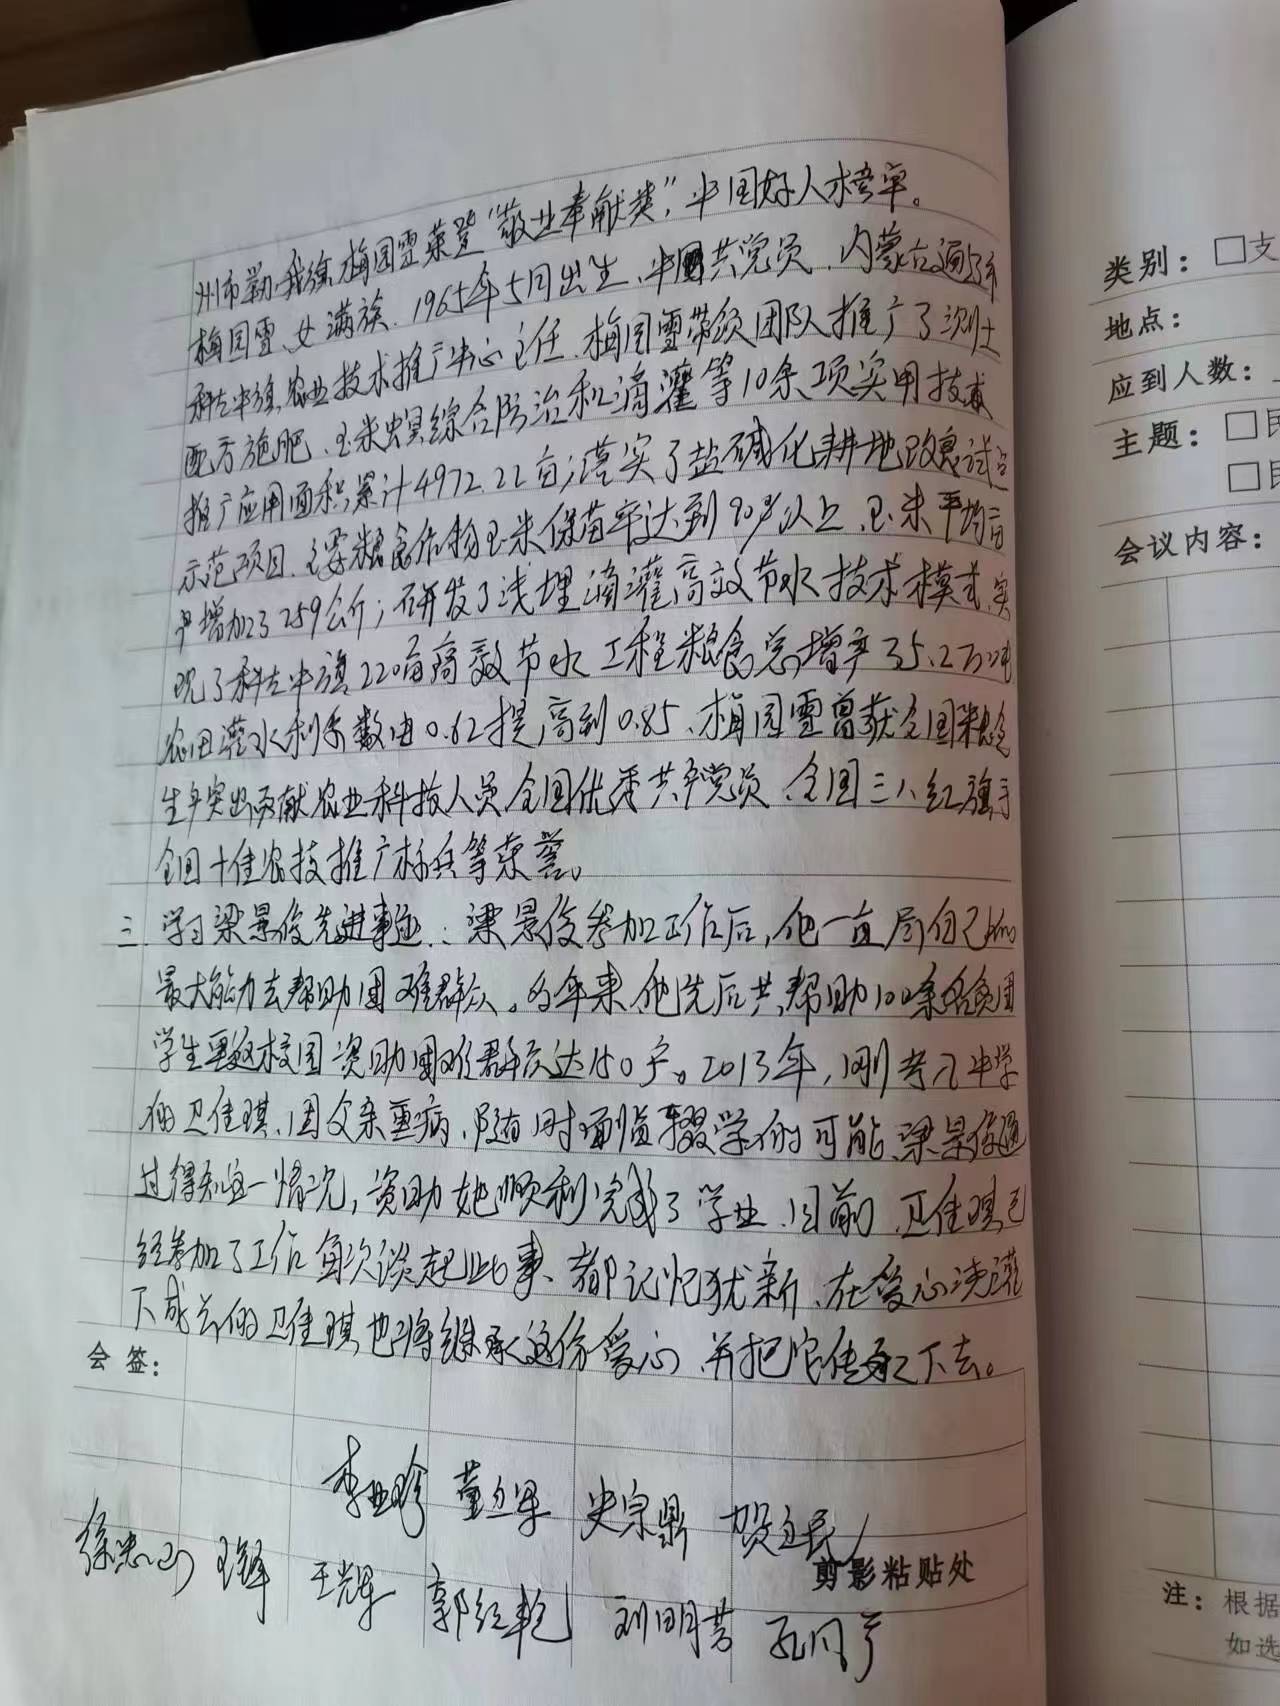 梅园雪荣登“敬业奉献类”，中国好人榜单。
梅园雪、女满族、1965年5月出生、中国共党员、内蒙古通辽市
科左中旗农业技术推广中心主任、梅园雪带领团队推广了测土
配方施肥、玉米螟综合防治和滴灌等10余项实用技术
推广应用面积累计4972.22亩；落实了盐碱化耕地改良试点
示范项目、主要粮食作物玉米保苗率达到90%以上、玉米平均亩
产增加了259公斤；研发了浅埋滴灌高效节水技术模式、实
现了科左中旗220亩高效节水工程粮食总增产35.2万吨
农田灌水利系数由0.62提高到0.85、梅园雪曾获全国粮食
生产突出贡献农业科技人员全国优秀共产党员、全国三八红旗手
全国十佳农技推广标兵等荣誉。
三、学习梁景俊先进事迹：梁景俊参加工作后，他一直尽自己的
最大能力去帮助困难群众。的年来、他先后共帮助100余名贫困
学生重返校园资助困难群众达150户。2013年，刚考入中学
的卫佳琪、因父亲重病、随时面临辍学的可能、梁景俊通
过得知这一情况，资助她顺利完成了学业、目前、卫佳琪已
经参加了工作每次谈起此事、都记忆犹新、在爱心浇灌
下成长的卫佳琪也将继承这份爱心、并把它传承下去。
会签：
李亚珍 董立军 史宗鼎 贺立民
徐忠 王锋 王辉 郭红艳 刘明芳 孔凡
剪影粘贴处
类别：□支
地点：
应到人数：
主题：□民
□民
会议内容：
注：根据
如选